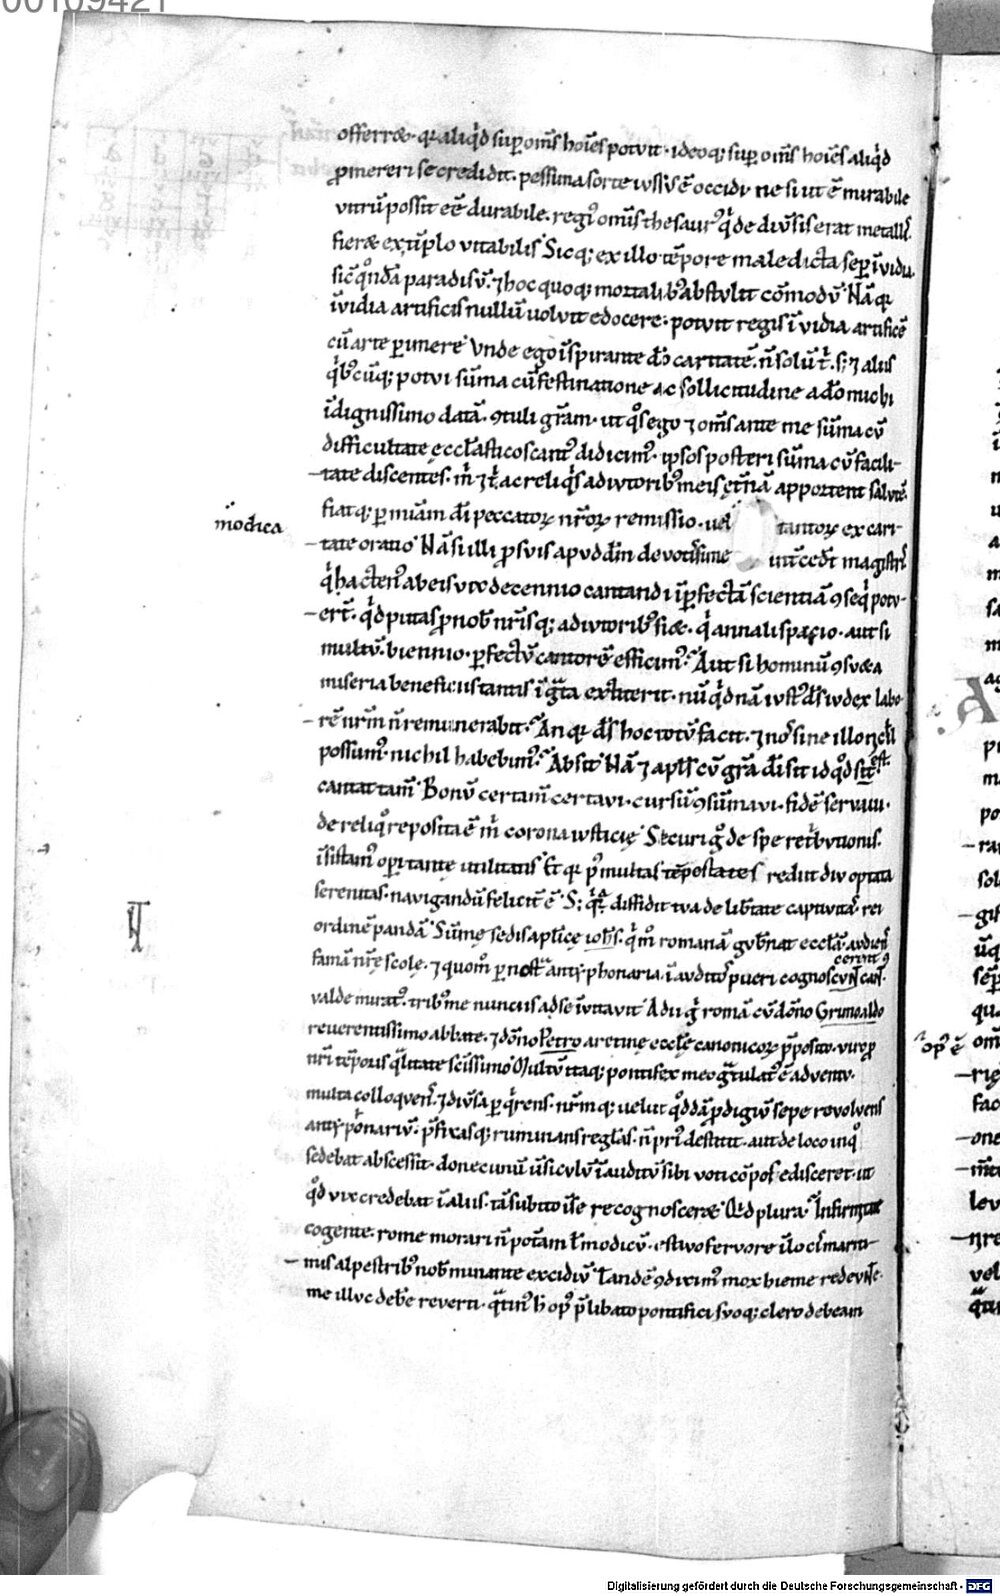 00109421
offerret· qr aliqd sup om̄s hoīes potuit· ideoq; sup om̄s hoīes aliqd
pmereri se credidit· pessima sorte iussus ē occidi ne si ut ē mirabile
utrū possit eē durabile· regius omnis thesaurus qi de diūsis erat metallis
fieret extiplo vitabilis Sicq; ex illo tēpore maledicta sep īvidia
sic qōndā paradisū· ⁊ hoc quoq; mortalib; abstulit cōmodū Nā qr
īvidia artificis nullū voluit edocere· potuit regis īvidia artificē
cū arte pimere Unde ego īspirante dō caritatē· n̄ solū t· s; ⁊ aliis
qib; cūq; potui sūma cū festinatione ac sollicitudine a dō michi
īdignissimo datā· ꝯtuli grām· ut qos ego ⁊ om̄s ante me sūma cū
difficultate eccl̄asticos cantus didicimus· ipsos posteri sūma cū facili-
tate discentes· m ⁊ t ac reliqis adiutorib; meis ętnā apportent salutē·
fiatq; p miām dī peccatorꝝ nrorꝝ remissio· vel tantorꝝ ex cari-
modica
tate oratio Nā si illi p suis apud dm̄ devotissime intcedt magistris
qi hactenus ab eis vix decennio cantandi ipfectā scientiā ꝯseqi potu-
ert· qid putas p nob nrisq; adiutorib; fiet· qi annali spacio· aut si
multū· biennio· pfectū cantorē efficimus· Aut si hominū ꝯsueta
miseria beneficiis tantis igrata extiterit· nūqid nā iustus ds iudex labo-
rē nrm n̄ remunerabit· An qr ds hoc totū facit· ⁊ nos sine illo nchil
possumus· nichil habebimus· Absit Nā ⁊ apls cū grā dī sit id qod sit est·
cantat tam̄ Bonū certam̄ certavi· cursū ꝯsūmavi· fidē servavi·
de reliqo reposita ē m corona iusticię Securi g de spe retbutionis·
īsistamus opi tante utilitatis Et qr p multas tēpestates rediit diu optata
serenitas· navigandū felicit ē S; qa diffidit tua de libtate captivitas rei
ordinē pandā Sūmę sedis aplice ioh̄s· qi m romanā gvbnat eccl̄ā· audiens
famā nrę scolę· ⁊ quom p nostra antiphonaria· īauditos pueri cognoscūt cant·
cerent ꝯ
valde miratus· tribus me nunciis ad se ivitavit Adii g romā cū dōno Grimoaldo
reverentissimo abbate· ⁊ dōno Petro aretinę eccl̄ę canonicorꝝ pposito· viro p
nri tēporis qlitate scissimo Multū itaq; pontifex meo gtulatus ē adventu·
multa colloquens· ⁊ diūsa pqrens· nrmq; velut qoddā pdigiū sepe revolvens
antiphonariū· pfixasq; ruminans reglas· n̄ prius destitit· aut de loco inqo
sedebat abscessit· donec unū ūsiculū īauditū sibi voti cōpos edisceret· ut
qd vix credebat ī aliis· tā subito ī se recognosceret Qd plura· Infirmitate
cogente· rome morari n̄ potam vl modicū· estivo fervore ī locis mariti-
mis alpestrib; nob minante excidiū Tandē ꝯdiximus mox hieme redeunte·
me illuc debe reverti· qtinus h opus plibato pontifici suoq; clero debeam
op ē
Digitalisierung gefördert durch die Deutsche Forschungsgemeinschaft - DFG